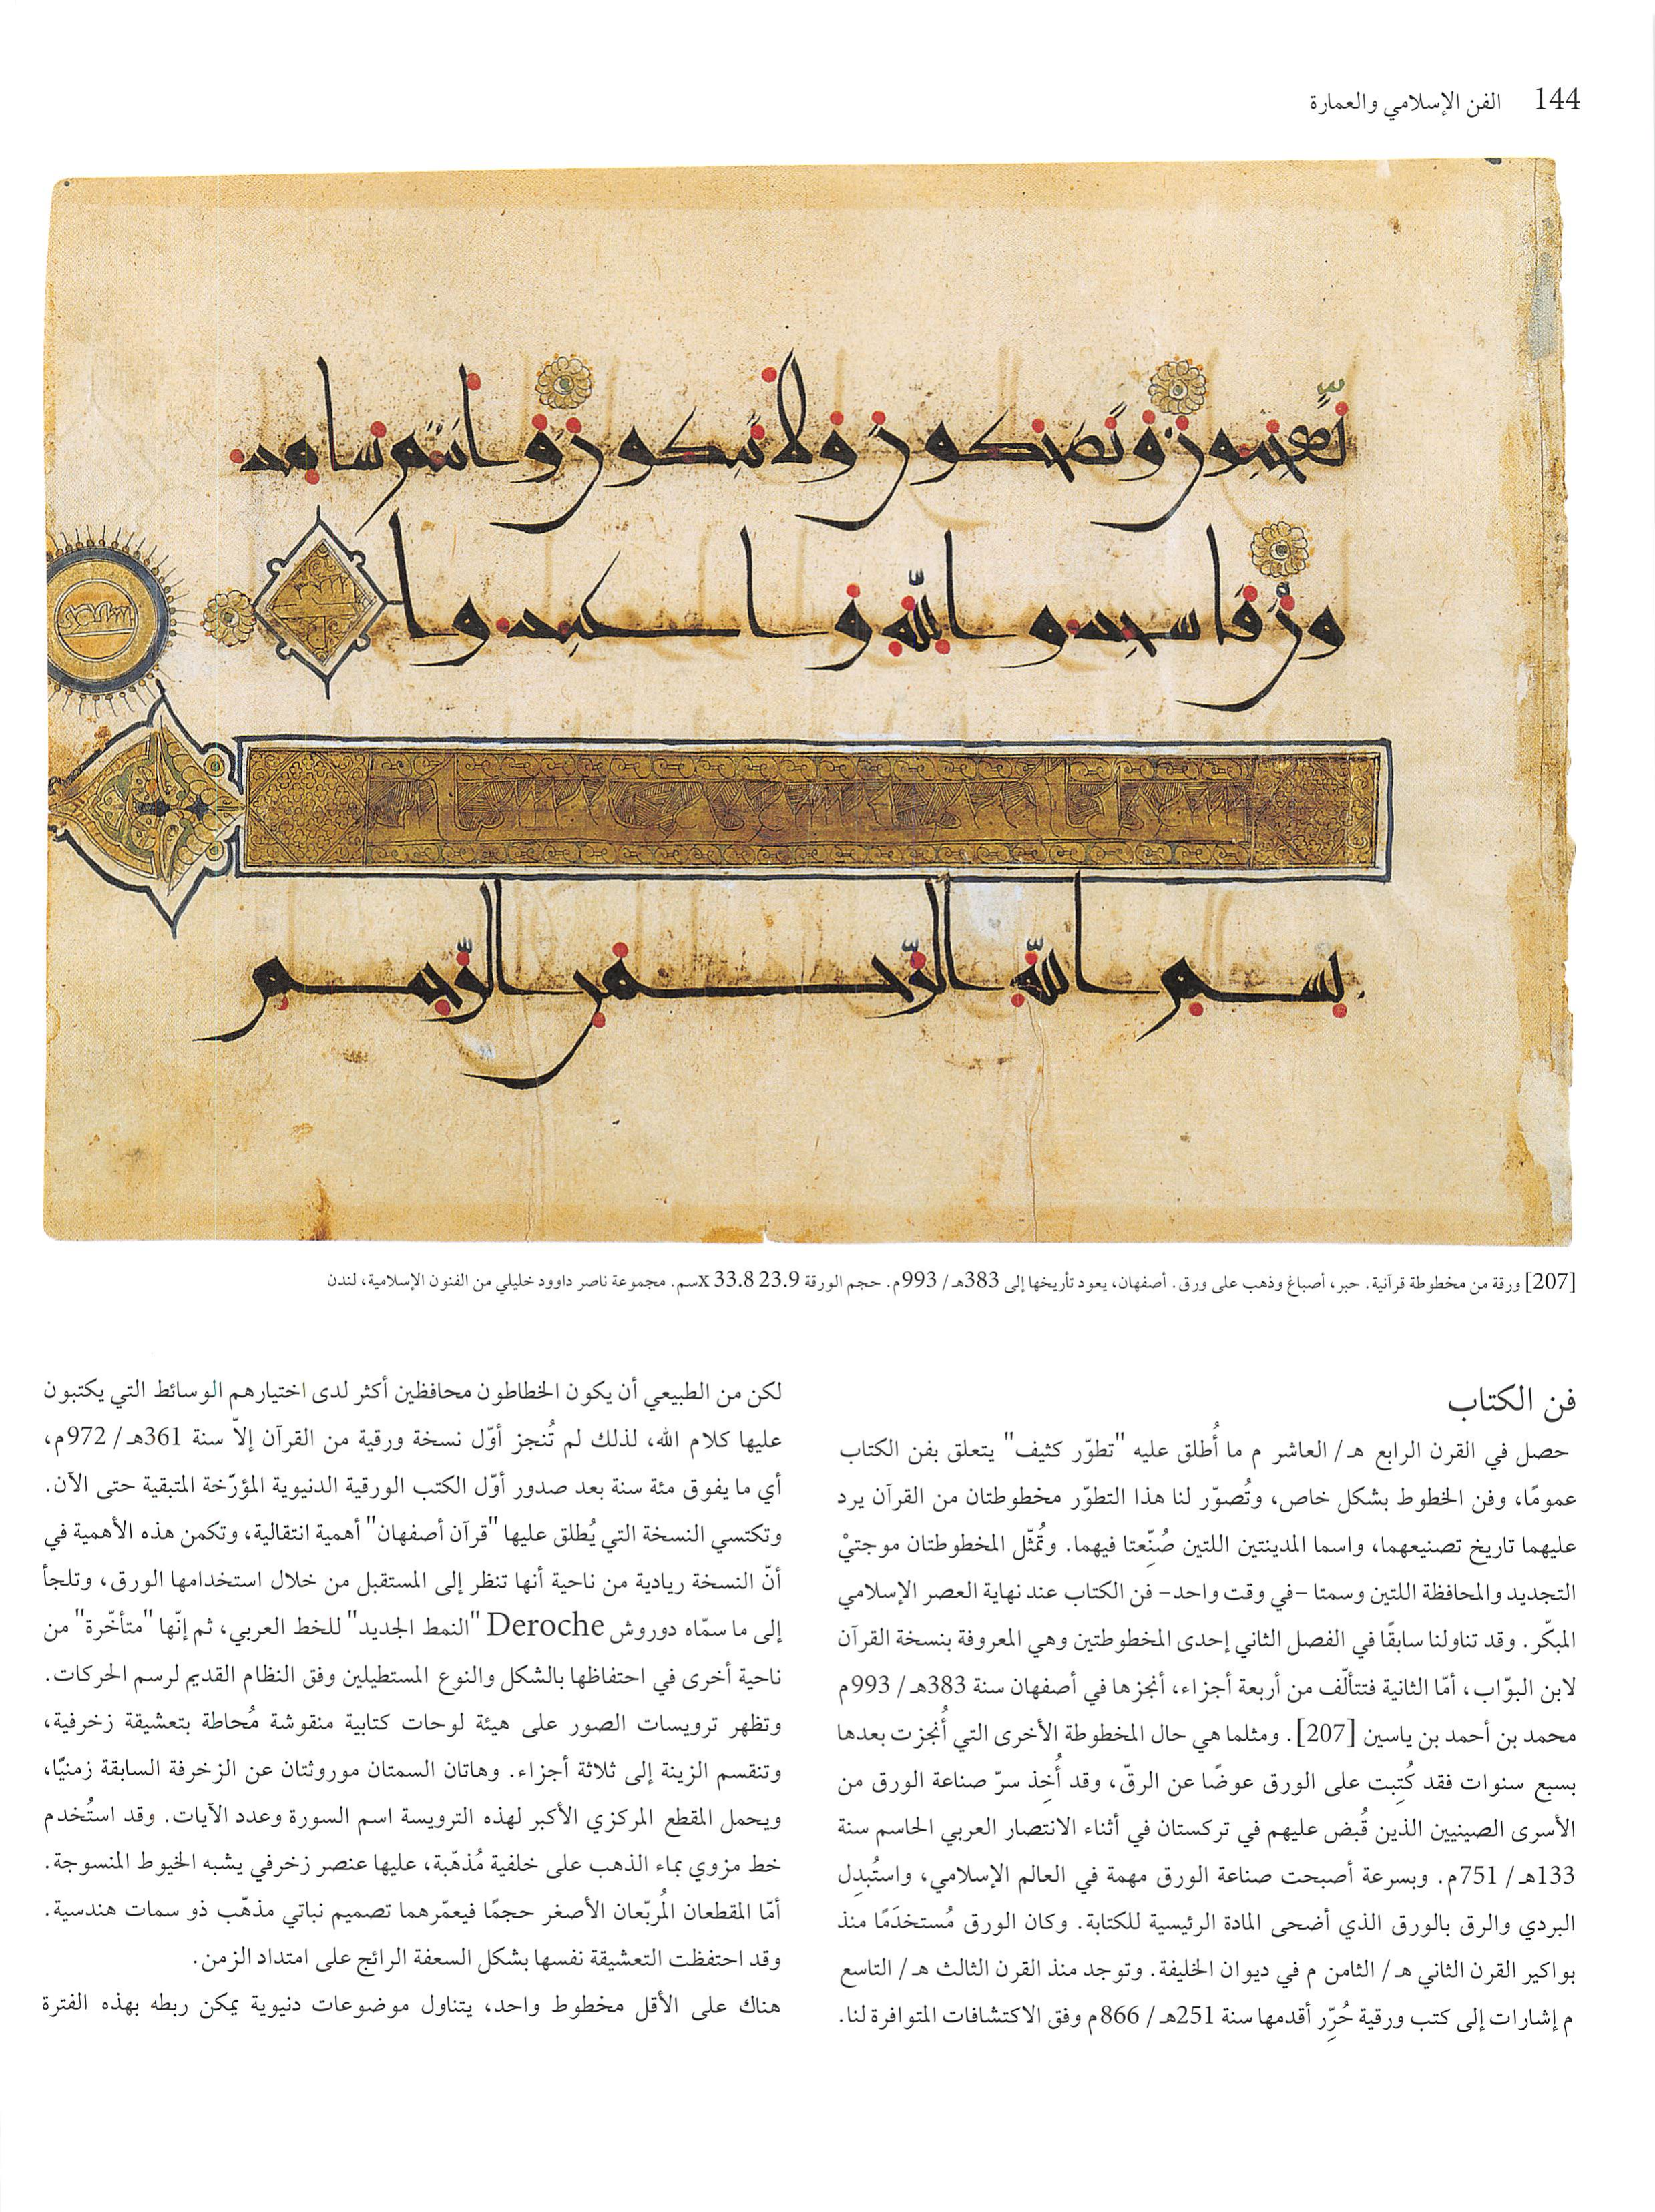 144 الفن الإسلامي والعمارة
تعجبون وتضحكون ولا تبكون وأنتم سامد
ون فاسجدوا لله واعبدوا
بسم الله الرحمن الرحيم
[207] ورقة من مخطوطة قرآنية. حبر، أصباغ وذهب على ورق. أصفهان، يعود تأريخها إلى 383هـ/ 993م. حجم الورقة 23.9 x 33.8سم. مجموعة ناصر داوود خليلي من الفنون الإسلامية، لندن
فن الكتاب
حصل في القرن الرابع هـ/ العاشر م ما أُطلق عليه "تطوّر كثيف" يتعلق بفن الكتاب
عمومًا، وفن الخطوط بشكل خاص، وتُصوّر لنا هذا التطوّر مخطوطتان من القرآن يرد
عليهما تاريخ تصنيعهما، واسما المدينتين اللتين صُنّعتا فيهما. وتُمثّل المخطوطتان موجتيْ
التجديد والمحافظة اللتين وسمتا -في وقت واحد- فن الكتاب عند نهاية العصر الإسلامي
المبكّر. وقد تناولنا سابقًا في الفصل الثاني إحدى المخطوطتين وهي المعروفة بنسخة القرآن
لابن البوّاب، أمّا الثانية فتتألّف من أربعة أجزاء، أنجزها في أصفهان سنة 383هـ/ 993م
محمد بن أحمد بن ياسين [207]. ومثلما هي حال المخطوطة الأخرى التي أُنجزت بعدها
بسبع سنوات فقد كُتِبت على الورق عوضًا عن الرقّ، وقد أُخِذ سرّ صناعة الورق من
الأسرى الصينيين الذين قُبض عليهم في تركستان في أثناء الانتصار العربي الحاسم سنة
133هـ/ 751م. وبسرعة أصبحت صناعة الورق مهمة في العالم الإسلامي، واستُبدِل
البردي والرق بالورق الذي أضحى المادة الرئيسية للكتابة. وكان الورق مُستخدَمًا منذ
بواكير القرن الثاني هـ/ الثامن م في ديوان الخليفة. وتوجد منذ القرن الثالث هـ/ التاسع
م إشارات إلى كتب ورقية حُرّر أقدمها سنة 251هـ/ 866م وفق الاكتشافات المتوافرة لنا.
لكن من الطبيعي أن يكون الخطاطون محافظين أكثر لدى اختيارهم الوسائط التي يكتبون
عليها كلام الله، لذلك لم تُنجز أوّل نسخة ورقية من القرآن إلاّ سنة 361هـ/ 972م،
أي ما يفوق مئة سنة بعد صدور أوّل الكتب الورقية الدنيوية المؤرّخة المتبقية حتى الآن.
وتكتسي النسخة التي يُطلق عليها "قرآن أصفهان" أهمية انتقالية، وتكمن هذه الأهمية في
أنّ النسخة ريادية من ناحية أنها تنظر إلى المستقبل من خلال استخدامها الورق، وتلجأ
إلى ما سمّاه دوروش Deroche "النمط الجديد" للخط العربي، ثم إنّها "متأخّرة" من
ناحية أخرى في احتفاظها بالشكل والنوع المستطيلين وفق النظام القديم لرسم الحركات.
وتظهر ترويسات الصور على هيئة لوحات كتابية منقوشة مُحاطة بتعشيقة زخرفية،
وتنقسم الزينة إلى ثلاثة أجزاء. وهاتان السمتان موروثتان عن الزخرفة السابقة زمنيًّا،
ويحمل المقطع المركزي الأكبر لهذه الترويسة اسم السورة وعدد الآيات. وقد استُخدم
خط مزوي بماء الذهب على خلفية مُذهّبة، عليها عنصر زخرفي يشبه الخيوط المنسوجة.
أمّا المقطعان المُربّعان الأصغر حجمًا فيعمّرهما تصميم نباتي مذهّب ذو سمات هندسية.
وقد احتفظت التعشيقة نفسها بشكل السعفة الرائج على امتداد الزمن.
هناك على الأقل مخطوط واحد، يتناول موضوعات دنيوية يمكن ربطه بهذه الفترة